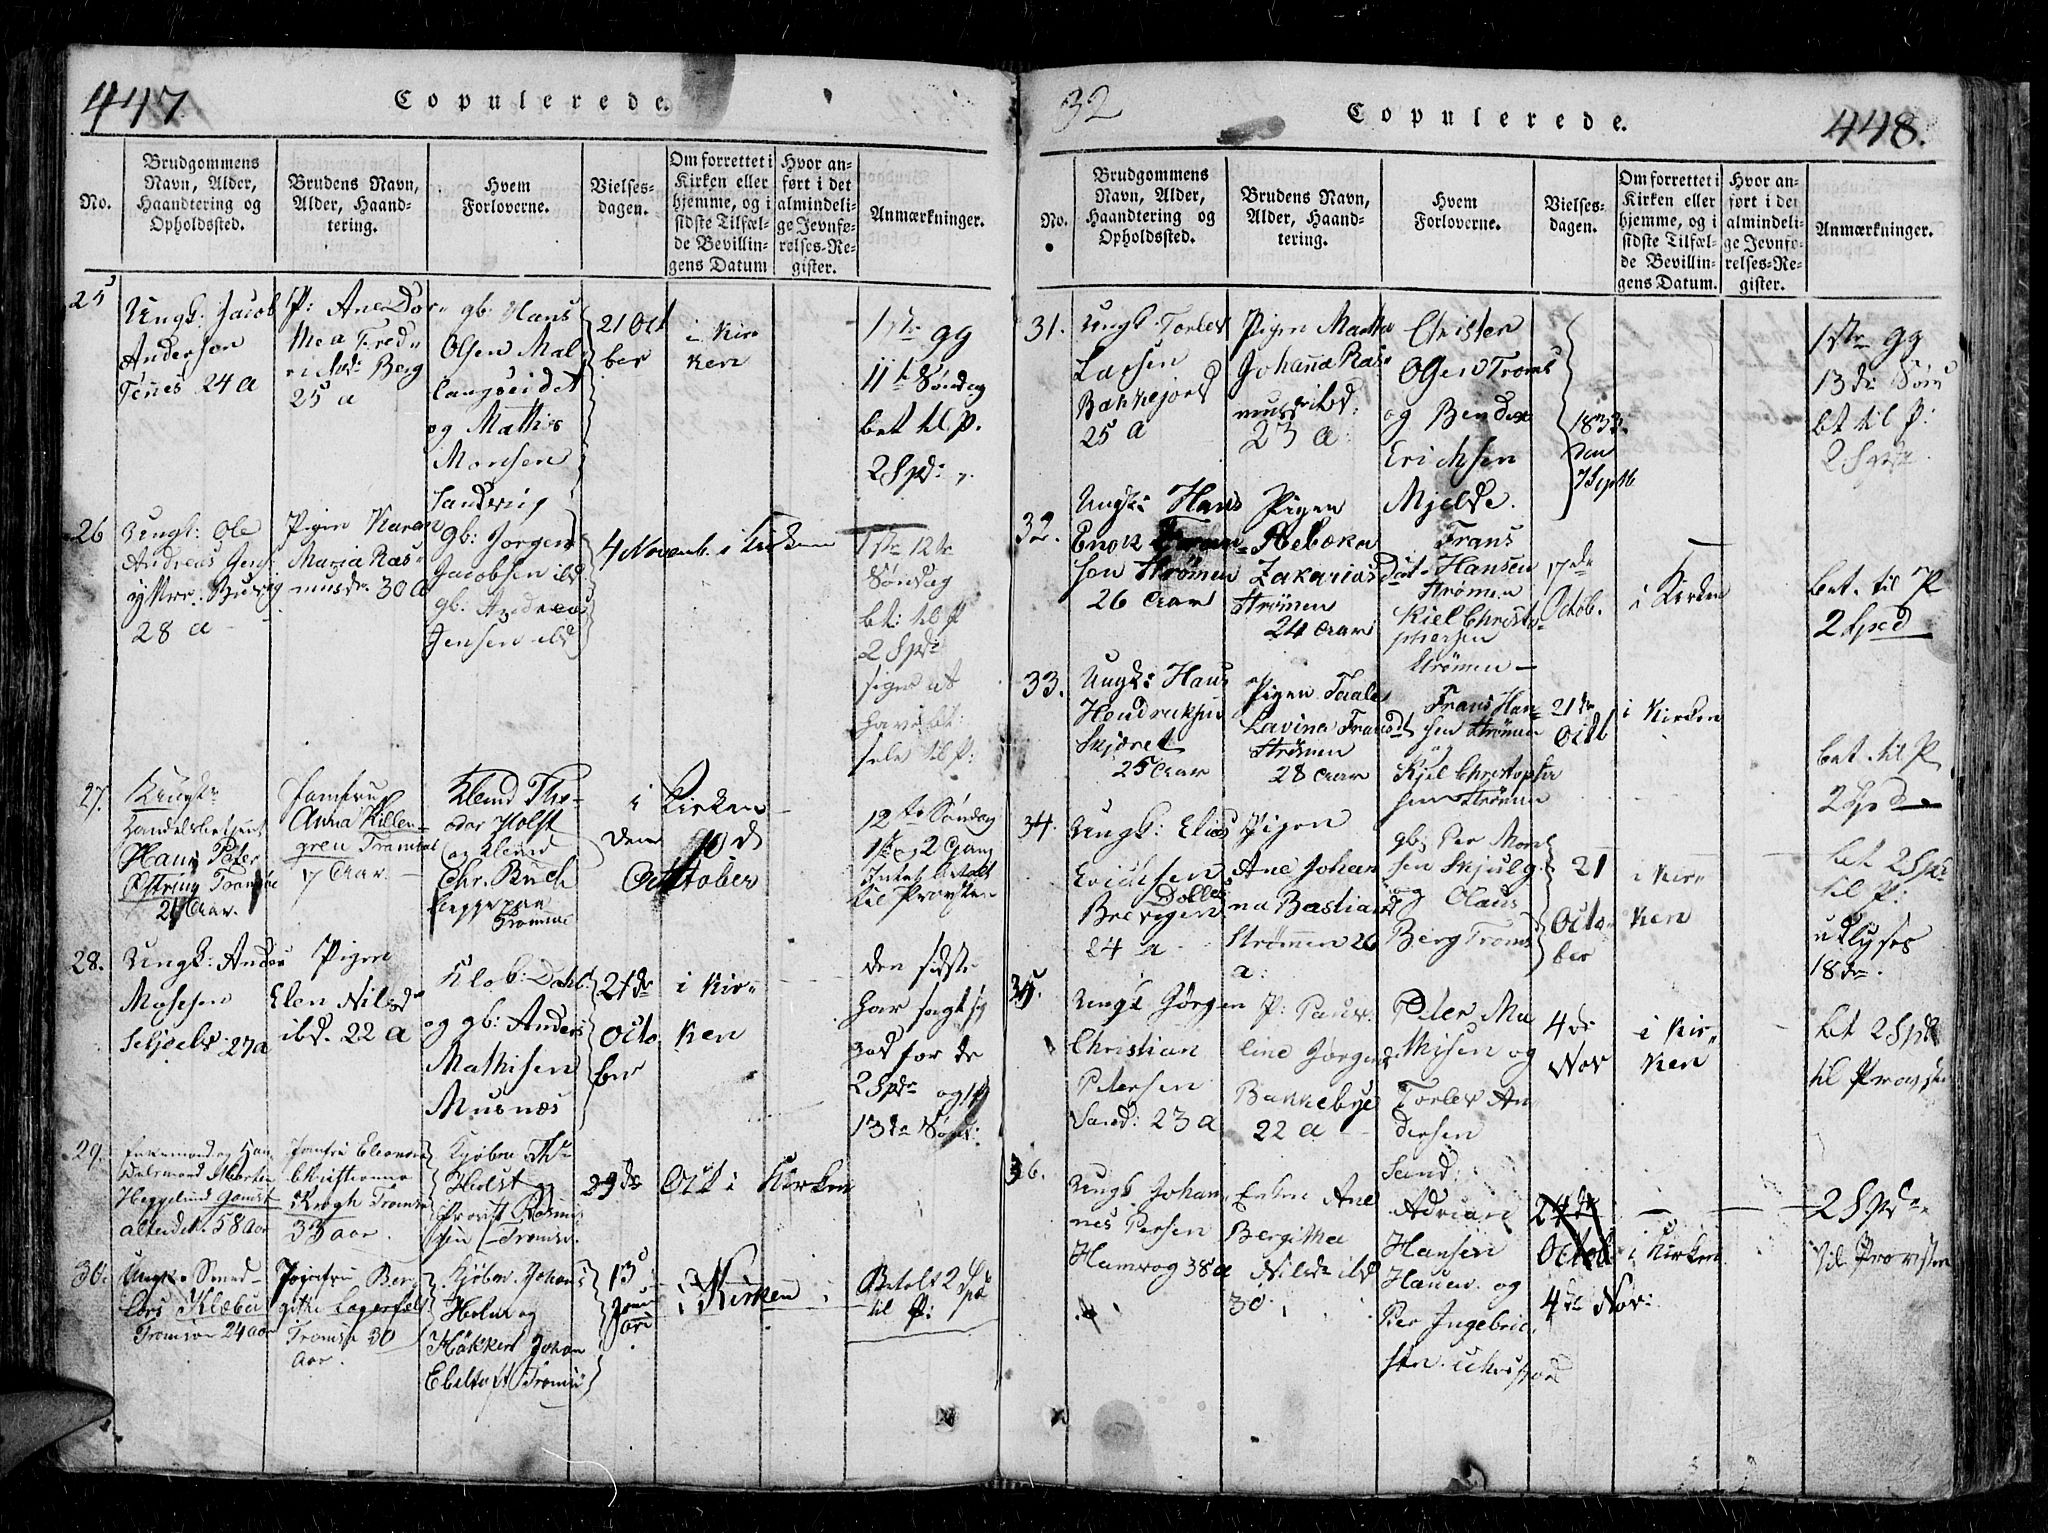 447.
Copulerede.
No.
Brudgommens
Navn, Alder,
Haandtering og
Opholdssted.
Brudens Navn,
Alder, Haand-
tering.
Hvem
Forloverne.
Vielses-
dagen.
Om forrettet i
Kirken eller
hjemme, og i
sidste Tilfæl-
de Bevillin-
gens Datum
Hvor an-
ført i det
almindeli-
ge Jevnfø-
relses-Re-
gister.
Anmærkninger.
25
Ungk: Jacob
Anderson
24 a
P: Ane Dor-
thea Fred-
Berg
25 a
gb: Hans
Olsen Mal-
langseidet
og Mathis
Monsen
Sandvig
21 Oct
ber
i Kir-
ken
1ste gg
11te Søndag
bet til P.
2 Spd:
26
Ungk: Ole
Andreas
28 a
Pigen Karen
Maria Ras-
musdr. 30 a
gb: Jørgen
Jacobsen ibd
gb: Andreas
Jensen ibd
4 Novemb.
i Kirken
1ste 12te
Søndag
bet: til P
2 Spd:
siger at
have bt:
selv til P:
27.
Handelsbetjent
Hans Peter
Tromsøe
21 Aar.
Jomfru
Anna Killen-
gren Tromsøe
17 Aar
Klemd The-
odor Holst
og Klemd
Chr. Buch
Tromsøe
i Kirken
den 10d
October
12te Søndag
1ste og 2 Gang
Intet betalt
til Provsten
28.
Ungk: Anders
Mosesen
27 a
Pigen
Elen Nilsd
ibd. 22 a
Klob: Dahl:
og gb: Anders
Mathisen
Musnæs
21de
Octo
ber
i Kir-
ken
den sidste
har sagt sig
god for de
2 Spdr og
13de Sønd:
29.
Enkemand og Han-
delsmand Morten
Heggelund Gamst
alder det. 58 Aar
Jomfru Eleonora
Christianna
Krogh Tromsø
33 aar.
Kjøbm Th
Holst og
Provst
Tromsø.
29de
Oct
i Kirken
30.
Ungk: Smed
Lars Klæbu
Tromsøe 24 aar
Jomfru Ber-
githe Lagerfelt
Tromsø 30
Aar.
Kjøbm. Johans
Holm og
Høkker Johan
Ebeltoft Tromsø
13
Janu
ari
i Kirken
Betalt 2 Spd
til P:
32
Copulerede.
448.
No.
Brudgommens
Navn, Alder,
Haandtering og
Opholdssted.
Brudens Navn,
Alder, Haand-
tering.
Hvem
Forloverne.
Vielses-
dagen.
Om forrettet i
Kirken eller
hjemme, og i
sidste Tilfæl-
de Bevillin-
gens Datum.
Hvor an-
ført i det
almindeli-
ge Jevnfø-
relses-Re-
gister.
Anmærkninger.
31.
Ungk: Torlev
Larsen
Bakkejord
25 a
Pigen Martha
Johanna Ras-
musdr ibd:
23 a:
Christen
Olsen Troms
og Bendix
Erichsen
Mjelde.
1833
den
7 Septb
1ste gg
13de Søn
bt til P:
2 Spd
32.
Ungk: Hans
Enok Fran-
sen Strømen
26 Aar
Pigen
Rebecka
Zakarias Dat-
Strømen
24 Aar
Frans
Hansen
Strømen
Kiel Christo-
phersen
Strømen
17de
Octob.
i Kirken
bet. til P
2 Sped
33.
Ungk: Hans
Hendricksen
Skjæret
25 Aar
Pigen
Lavina Frans Dt
Strømen
28 Aar
Frans Han-
sen Strømen
og
Kjel Christopher
sen Strømen
21de
Octb
i Kirken
bet. til P
2 Spd
34.
Ungk: Elias
Erichsen
Brevigen
24 a
Pigen
Ane Johan
na Bastian d
Strømmen 26
a:
gb: Per Mort
sen Skjulg
og Claus
Berg Troms
21
Octo-
ber
i Kir-
ken
bet 2 Spd
til P:
udlyses
18de.
35.
Ungk Jørgen
Christian
Petersen
Sand: 23 a
P: Paul-
line Jørgensd
Bakkebye
22 a
Peter Ma
thisen og
Torlev An
dersen
Sand:
4de
Nov
i Kir-
ken
bet 2 Spd
til Provsten
36.
Ungk Johan-
nes Persen
Hamvog 38 a
Enken Ane
Bergitha
Nilsdr ibd
30.
Adrian
Hansen
Haaen. og
Per Ingebric-
sen.
24de
Octob
4de Nov:
i Kirken
2 Spdr
til Provsten